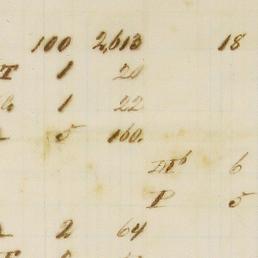 100 2,613 18
T 1 20
1 22
5 160.
Mo 6
P 5
2 64